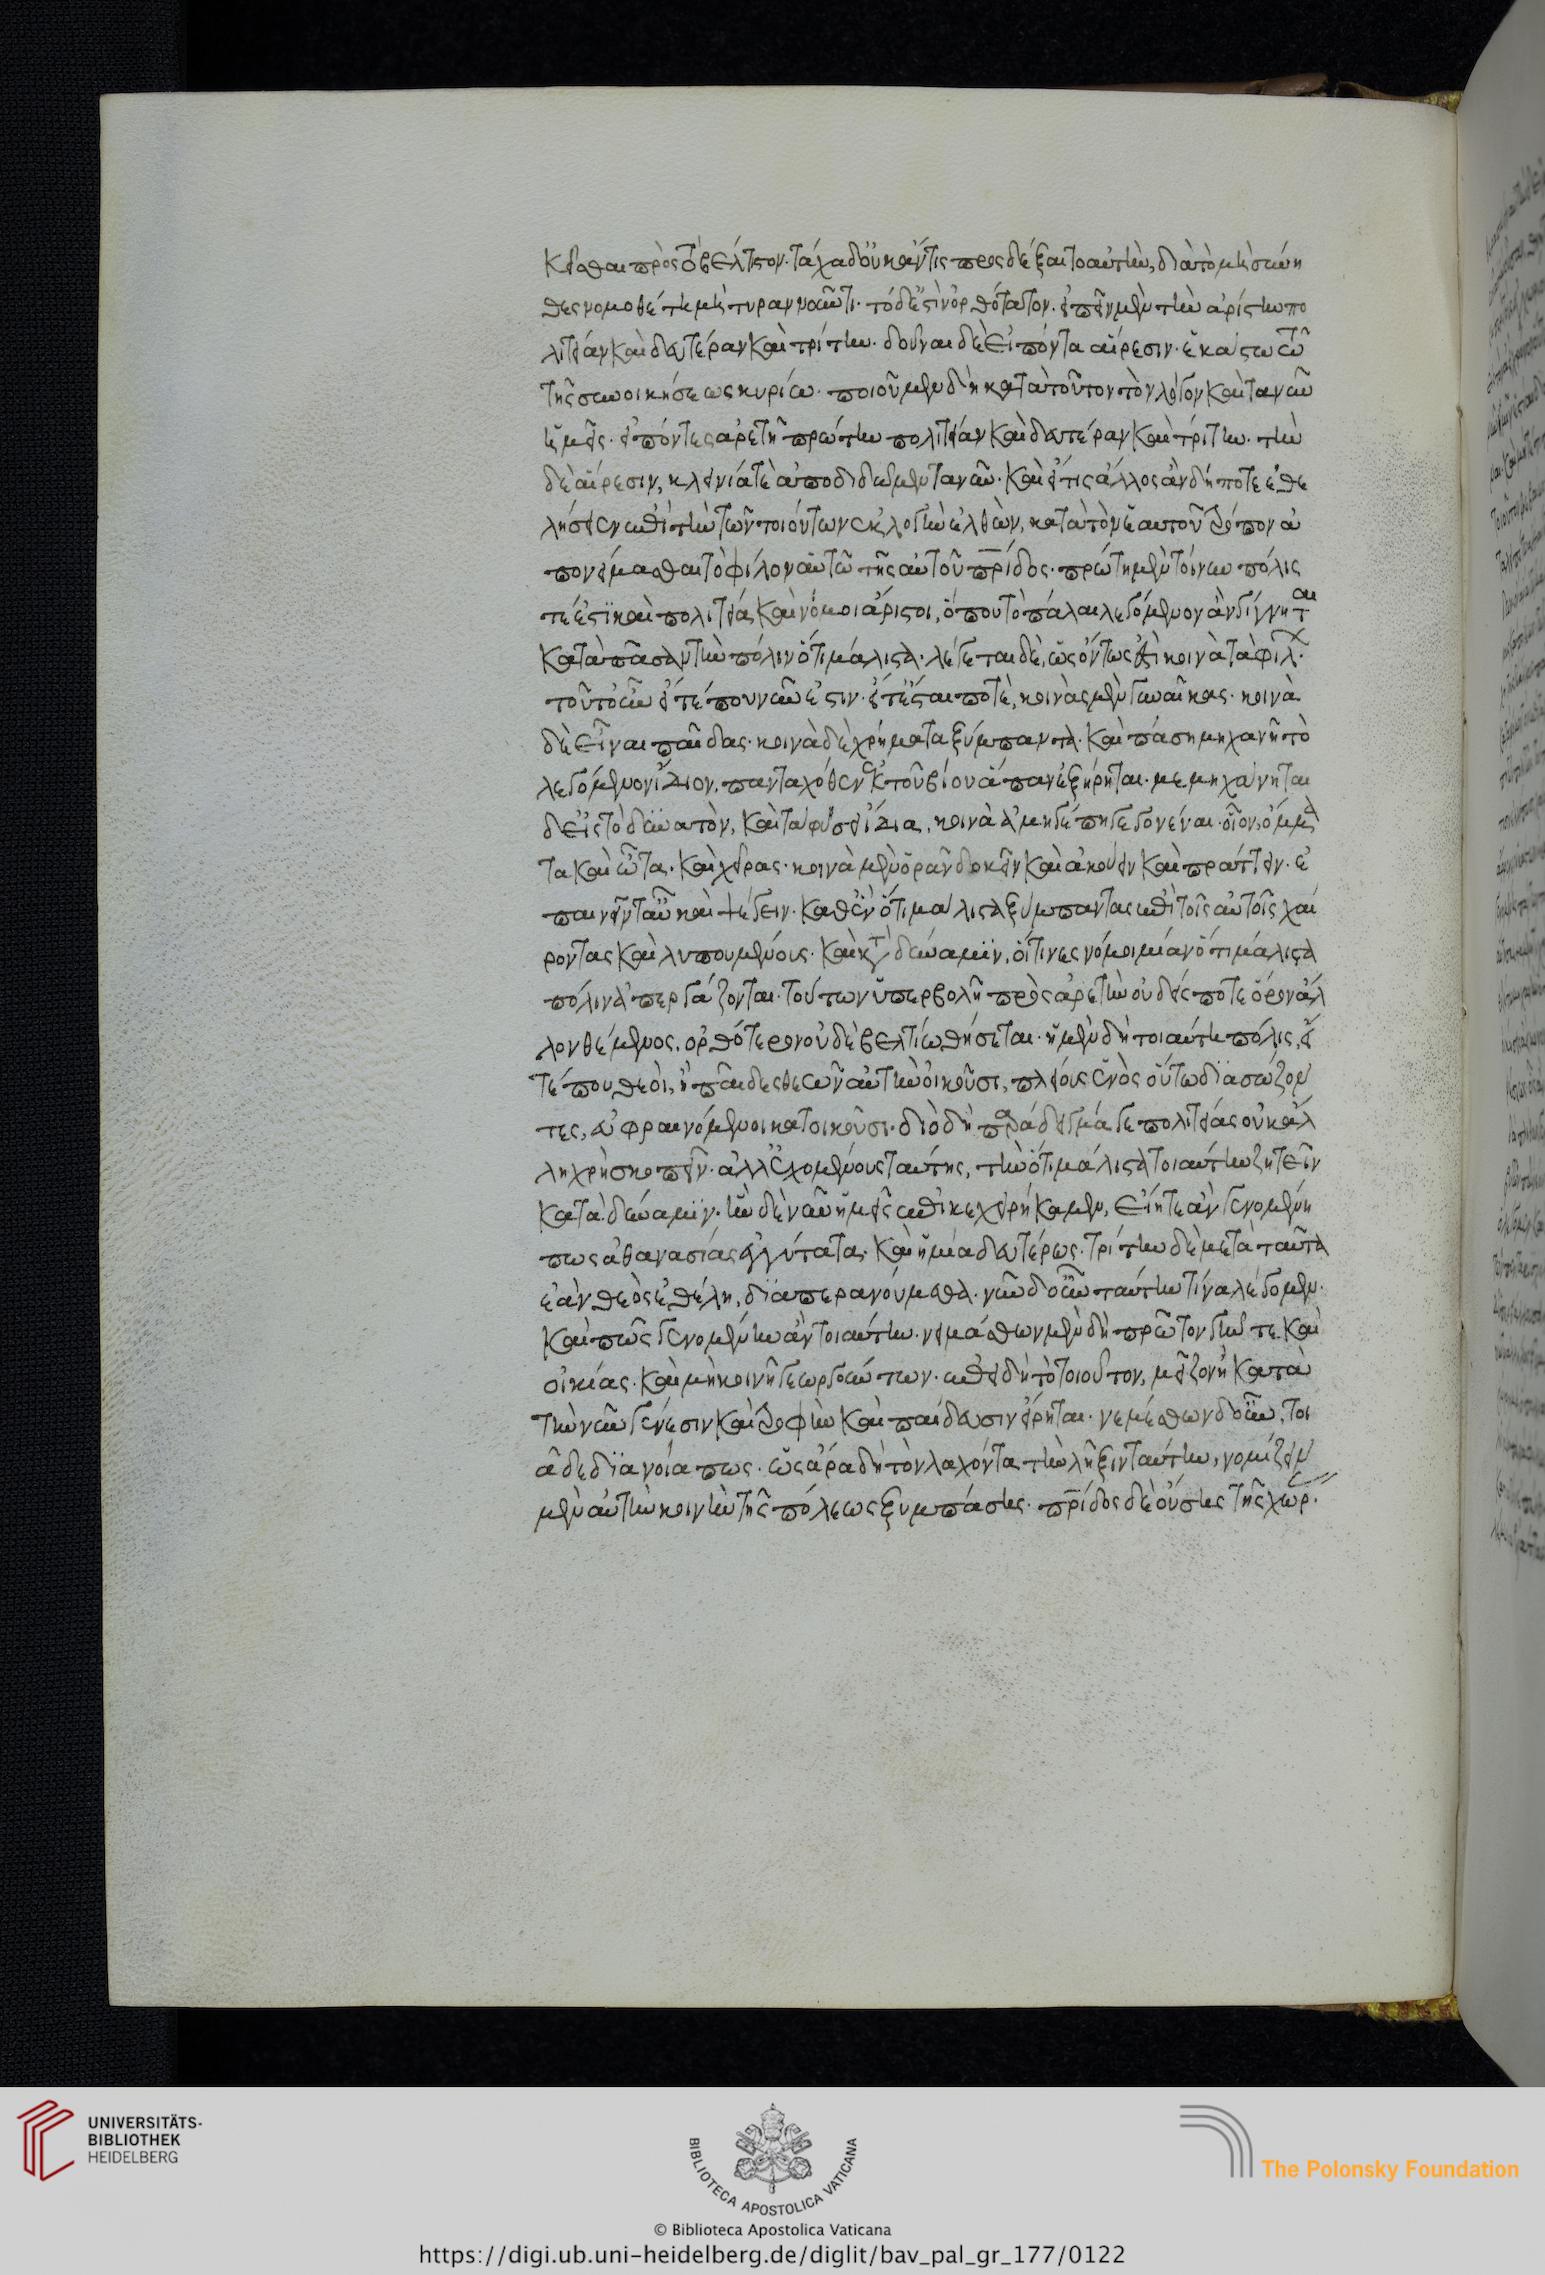 κεῖσθαι πρὸς τὸ βέλτιστον. τάχα δ' οὐκ ἄν τις προσδέξαιτο αὐτὴν, διὰ τὸ μὴ σύνη
θες νομοθέτῃ μὴ τυραννοῦντι. τὸ δ' ἔστιν ὀρθότατον. εἰπεῖν μὲν τὴν ἀρίστην πο
λιτείαν καὶ δευτέραν καὶ τρίτην. δοῦναι δὲ εἰπόντα αἵρεσιν. ἑκάστῳ τῷ
τῆς συνοικήσεως κυρίῳ. ποιοῦμεν δὴ κατὰ τοῦτον τὸν λόγον καὶ τανῦν
ἡμεῖς. εἰπόντες ἀρετῇ πρώτην πολιτείαν καὶ δευτέραν καὶ τρίτην. τὴν
δὲ αἵρεσιν, κλεινίᾳ τὲ ἀποδιδῶμεν τανῦν. καὶ εἴ τις ἄλλος ἂν δή ποτε ἐθε
λήσειεν ἐπὶ τὴν τῶν τοιούτων ἐκλογὴν ἐλθὼν, κατὰ τὸν ἑαυτοῦ τρόπον ἀ
πονείμασθαι τὸ φίλον αὑτῷ τῆς αὑτοῦ πρίδος. πρώτη μὲν τοίνυν πόλις
τέ ἐστι καὶ πολιτεία, καὶ νόμοι ἄριστοι, ὅπου τὸ πάλαι λεγόμενον ἂν γίγνηται
κατὰ πᾶσαν τὴν πόλιν ὅτι μάλιστα. λέγεται δὲ, ὡς ὄντως ἐστὶ κοινὰ τὰ φίλων.
τοῦτ' οὖν εἴ τέ που νῦν ἐστιν. εἴ τ' ἔσται ποτὲ, κοινὰς μὲν γυναῖκας. κοινὰ
δὲ εἶναι παῖδας. κοινὰ δὲ χρήματα ξύμπαντα. καὶ πάσῃ μηχανῇ τὸ
λεγόμενον ἴδιον, πανταχόθεν ἐκ τοῦ βίου ἅπαν ἐξῄρηται. μεμηχάνηται
δ' εἰς τὸ δυνατὸν, καὶ τὰ φύσει ἴδια, κοινὰ ἁμηγέπῃ γεγονέναι. οἷον, ὄμμα
τα καὶ ὦτα. καὶ χεῖρας. κοινὰ μὲν ὁρᾶν δοκεῖν καὶ ἀκούειν καὶ πράττειν. ἐ
παινεῖν τ' αὖ καὶ ψέγειν. καθ' ἓν ὅτι μάλιστα ξύμπαντας ἐπὶ τοῖς αὐτοῖς χαί
ροντας καὶ λυπουμένους. καὶ κατὰ δύναμιν, οἵτινες νόμοι μίαν ὅτι μάλιστα
πόλιν ἀπεργάζονται. τούτων ὑπερβολῇ πρὸς ἀρετὴν οὐδείς ποτε ὅρον ἄλ
λον θέμενος, ὀρθότερον οὐδὲ βελτίω θήσεται. ἡ μὲν δὴ τοιαύτη πόλις, εἴ
τέ που θεοὶ, ἢ παῖδες θεῶν αὐτὴν οἰκοῦσι, πλείους ἑνὸς οὕτω διασώζον
τες, εὐφραινόμενοι κατοικοῦσι. διὸ δὴ παράδειγμά γε πολιτείας οὐκ ἄλ
λῃ χρὴ σκοπεῖν. ἀλλ' ἐχομένους ταύτης, τὴν ὅτι μάλιστα τοιαύτην ζητεῖν
κατὰ δύναμιν. ἣν δὲ νῦν ἡμεῖς ἐπικεχειρήκαμεν, εἴη τε ἂν γενομένη
πως ἀθανασίας ἐγγύτατα. καὶ ἡ μία δευτέρως. τρίτην δὲ μετὰ ταῦτα
ἐὰν θεὸς ἐθέλῃ, διαπερανούμεθα. νῦν δ' οὖν ταύτην τίνα λέγομεν.
καὶ πῶς γενομένην ἂν τοιαύτην. νειμάσθων μὲν δὴ πρῶτον γῆν τε καὶ
οἰκίας. καὶ μὴ κοινῇ γεωργούντων. ἐπειδὴ τὸ τοιοῦτον, μεῖζον ἢ κατὰ
τὴν νῦν γένεσιν καὶ τροφὴν καὶ παίδευσιν εἴρηται. νεμέσθων δ' οὖν, τοι
ᾷδε διανοίᾳ πως. ὡς ἄρα δὴ τὸν λαχόντα τὴν λῆξιν ταύτην, νομίζειν
μὲν αὐτὴν κοινὴν τῆς πόλεως ξυμπάσης. πρίδος δὲ οὔσης τῆς χώρ.
UNIVERSITÄTS-
BIBLIOTHEK
HEIDELBERG
BIBLIOTECA APOSTOLICA VATICANA
The Polonsky Foundation
© Biblioteca Apostolica Vaticana
https://digi.ub.uni-heidelberg.de/diglit/bav_pal_gr_177/0122